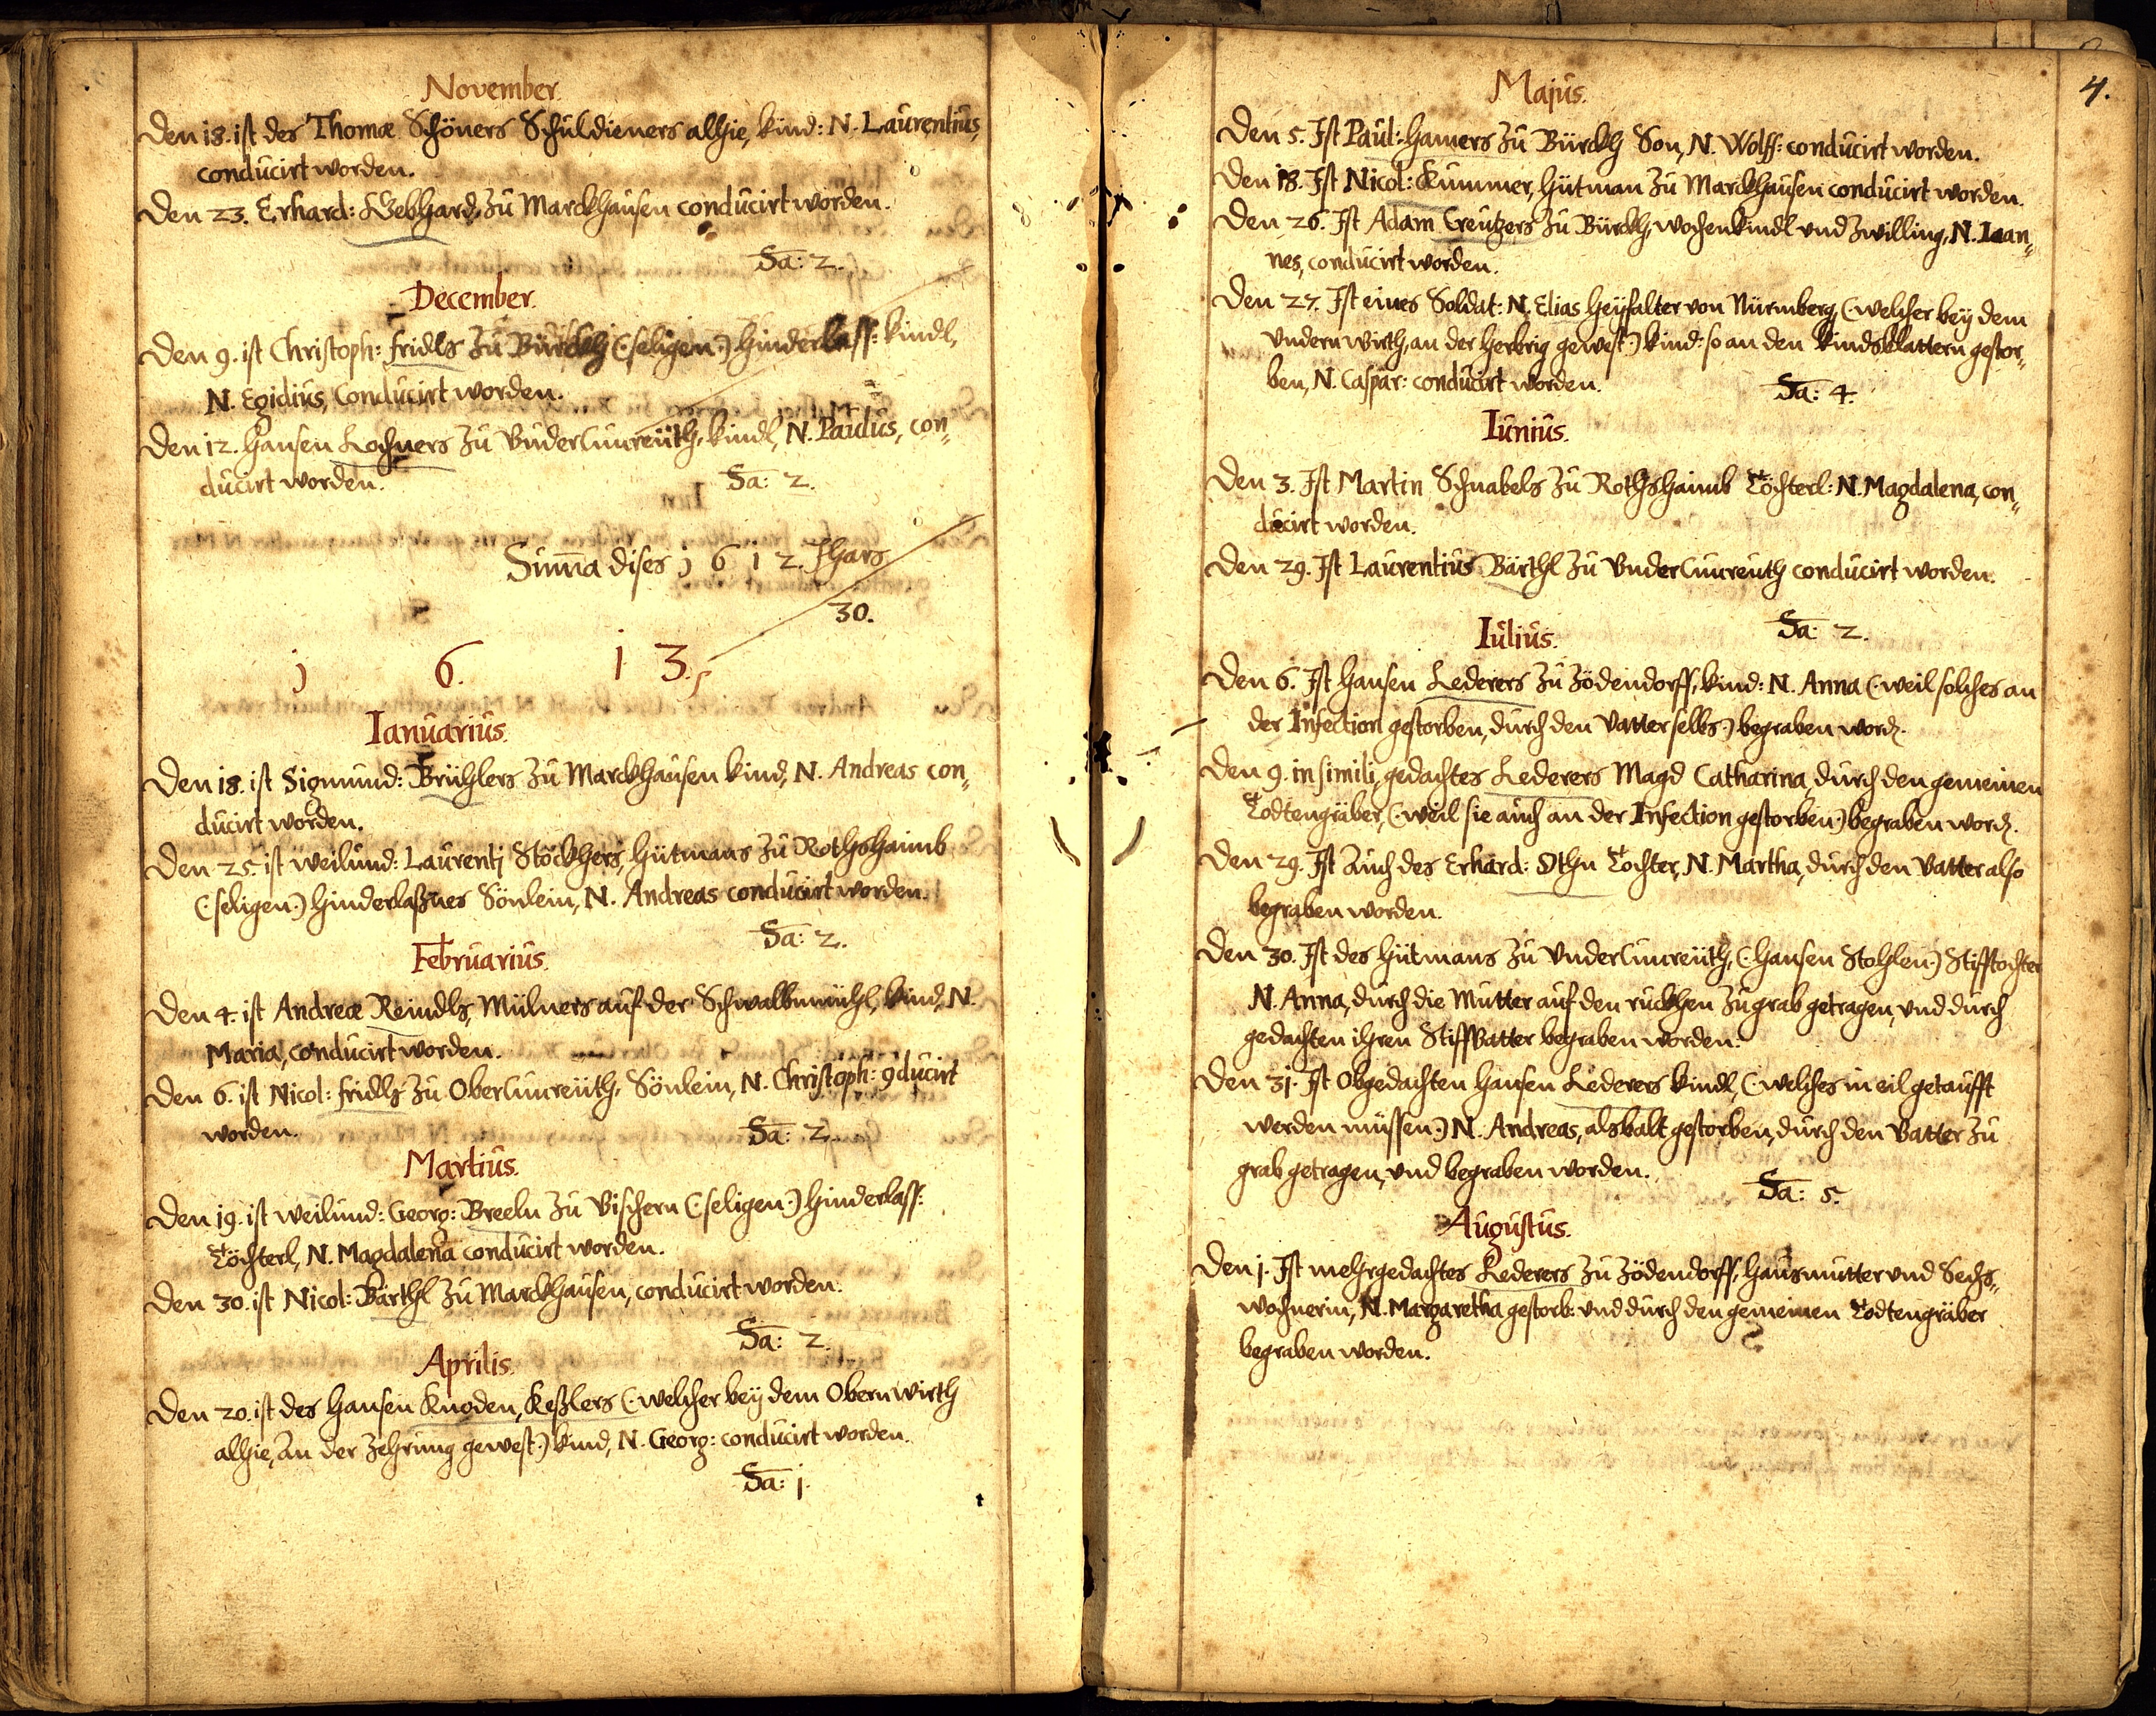 November.
Den 18. ist des Thomæ Schöners Schuldieners alhie, kind: N. Laurentius,
conducirt worden.
Den 23. Erhard: Gebhard, zu Marckhausen conducirt worden.
Sa: 2.
December.
Den 9. ist Christoph: fridls zu Bürckh (: seligen :) hinderlass: kindl,
N. Egidius, Conducirt worden.
Den 12. Hansen Lochners zu Underlinreüth, kindl, N. Paulus, con„
ducirt worden.
Sa: 2.
Suma dises 1 6 1 2. Jhars
30.
1 6. 1 3.
Ianuarius.
Den 18. ist Sigmund: Brühlers zu Marckhausen kind, N. Andreas con„
ducirt worden.
Den 25. ist weilund: Laurentj Stöckhers, Hütmans zu Rothshaimb
(: seligen :) hinderlaßnes Sönlein, N. Andreas conducirt worden.
Sa: 2.
Februarius.
Den 4. ist Andreæ Reindls, Mülners auf der Schwalbmühl, kind, N.
Maria, conducirt worden.
Den 6. ist Nicol: fridls zu Oberlinreüth, Sönlein, N. Christoph: 9ducirt
worden.
Sa: 2.
Martius.
Den 19. ist weilund: Georg: Breeln zu Vischern (: seligen :) hinderlass:
Töchterl, N. Magdalena conducirt worden.
Den 30. ist Nicol: Bärthl zu Marckhausen, conducirt worden.
Sa: 2.
Aprilis.
Den 20. ist des Hansen Knoden, Keßlers (: welcher bey dem Obern wirth
alhie, An der Zehrung gewest :) kind, N. Georg: conducirt worden.
Sa: 1.
4.
Majus.
Den 5. Ist Paul: Hamers zu Bürckh Son, N. Wolff: conducirt worden.
Den 18. Ist Nicol: Kummer, Hütman zu Marckhausen conducirt worden.
Den 26. Ist Adam Creutzers zu Bürckh, wochenkindl und Zwilling, N. Ioan„
nes, conducirt worden.
Den 27. Ist eines Soldat: N. Elias Heyfalter von Nürmberg (: welcher bey dem
undern wirth, an der herbrig gewest :) kind: so an den kindsblattern gestor„
ben, N. Caspar: conducirt worden.
Sa: 4.
Iunius.
Den 3. Ist Martin Schnabels zu Rothshaimb Töchterl: N. Magdalena, con„
ducirt worden.
Den 29. Ist Laurentius Bärthl zu Underlinreuth conducirt worden.
Sa: 2.
Iulius.
Den 6. Ist Hansen Lederers zu Zödendorff, kind: N. Anna (: weil solches an
der Infection gestorben, durch den Vatter selbs :) begraben word.
Den 9. in simili, gedachtes Lederers Magd Catharina, durch den gemeinen
Todtengräber, (: weil sie auch an der Infection gestorben :) begraben word.
Den 29. Ist Auch des Erhard: Othn Tochter, N. Martha, durch den Vatter also
begraben worden.
Den 30. Ist des Hütmans zu Underlinreüth, (: Hansen Stohlen :) Stifftochter
N. Anna, durch die Mutter auf den ruckhen zu grab getragen, und durch
gedachten ihren Stiffvatter begraben worden.
Den 31. Ist Obgedachten Hansen Lederers kindl, (: welches in eil getaufft
werden müssen :) N. Andreas, alsbalt gestorben, durch den Vatter zu
grab getragen, und begraben worden.
Sa: 5.
Augustus.
Den 1. Ist mehrgedachtes Lederers zu Zödendorff, Hausmutter und Sechs„
wochnerin, N. Margaretha gestorb: und durch den gemeinen Todtengräber
begraben worden.